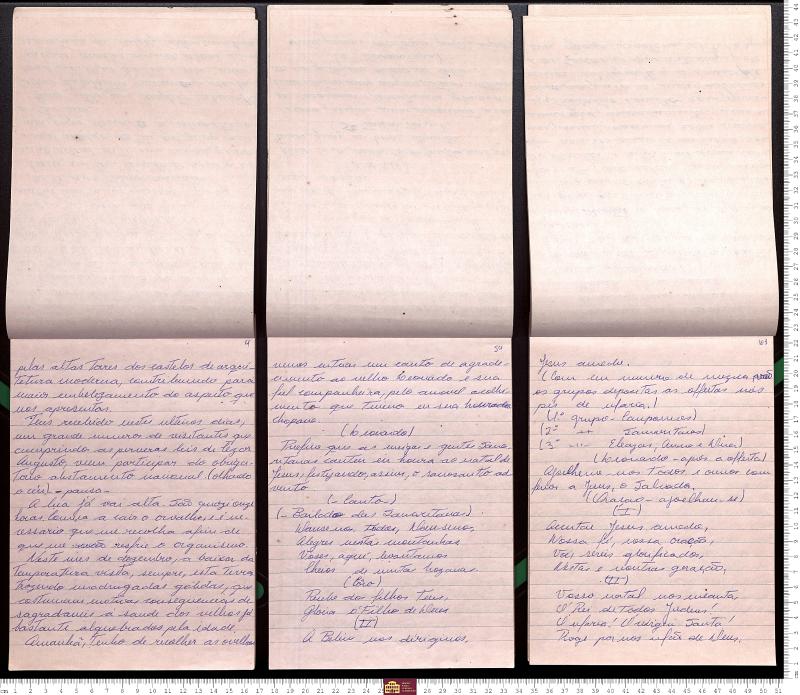 4
pelas altas torres dos castelos de arqui-
tetura moderna, contribuindo para
maior embelezamento do aspecto que
nos apresentas.
Tens recebido nestes ultimos dias,
um grande numero de visitantes que
cumprindo as severas leis de Cezar
Augusto, veem participar do obriga-
torio alistamento nacional (olhando
o céu) - pausa -
A lua já vai alta. São quazi onze
horas começa a cair o orvalho, e é ne-
cessario que me recolha afim de
que me não resfrie o organismo.
Neste mês de dezembro, a baixa da
temperatura visita, sempre, esta terra
trazendo madrugadas gelidas, que
costumam motivar consequencias de-
sagradaveis á saude dos velhos já
bastante alquebrados pela idade.
Amanhã, tenho de recolher as ovelhas
50
vemos entoar um canto de agrade-
cimento ao velho Leonardo e sua
fiel companheira, pelo amavel acolhi-
mento que tivemos em sua
choupana.
Prefiro que as amigas e gentis Sama-
ritanas cantem em honra ao natal de
Jesus, festejando, assim, o sacrosanto ad-
vento
(- Canto -)
(- Bailado das Samaritanas)
Alegres nestas montanhas
(Côro)
Gloria o Filho de Deus
(II)
A Belem nos dirigimos,
103
Jesus amado.
(Com um numero de musica
os grupos depositam as offertas nos
pés de Maria.)
(1º grupo - Camponeses)
(2º " Samaritanas)
(3º " Eleazar, Anna e Dina)
(Leonardo - após a offerta)
Ajoelhemo-nos todos e vamos com
(Oração - ajoelham-se)
(I)
Aceitai Jesus amado,
Nossa fé, nossa oração,
Vós sereis glorificado,
Nesta e noutras geração.
(II)
Vosso natal nos encanta,
O' Rei de todos Judeus!
O' Maria! O' virgem Santa!
Rogai por nos mãe de Deus.